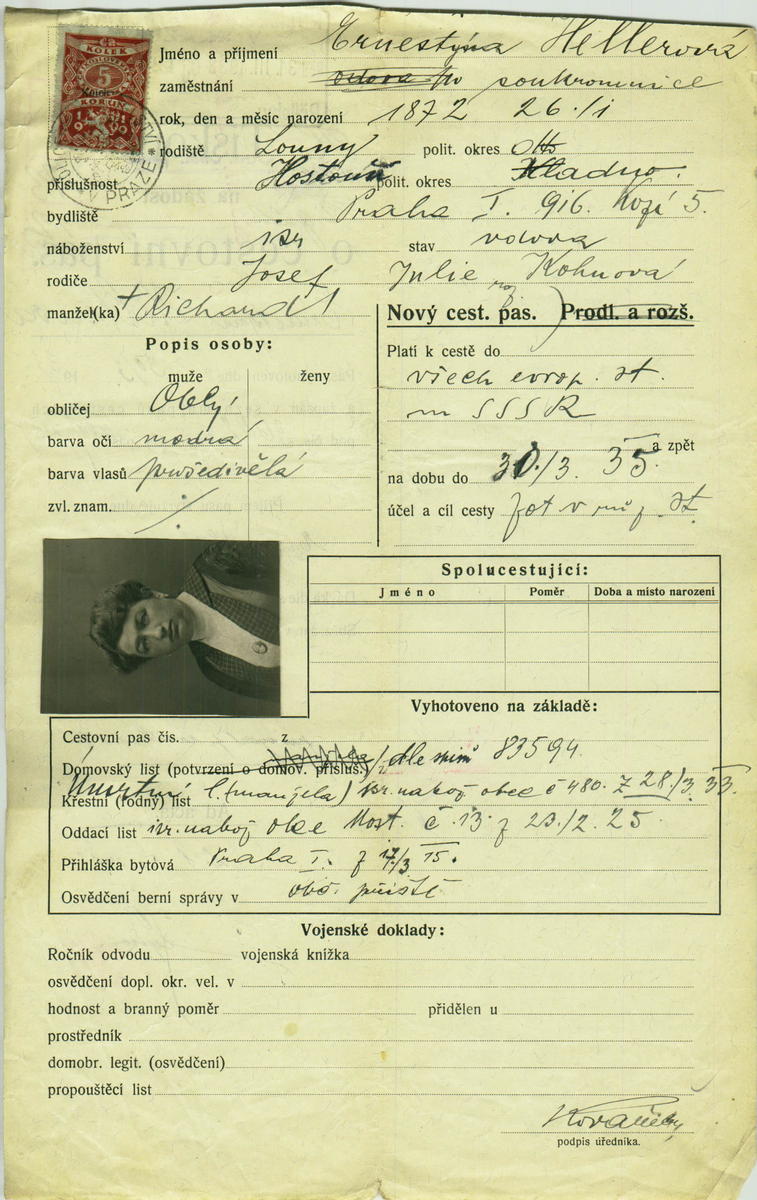 KOLEK
5
KORUN
V PRAZE
Jméno a příjmení Ernestýna Hellerová
zaměstnání soukromnice
rok, den a měsíc narození 1872 26./I
rodiště Louny polit. okres dtto
příslušnost Hostouň polit. okres Kladno.
bydliště Praha I. 916. Kozí 5.
náboženství isr stav vdova
rodiče Josef Julie roz Kohnová
manžel(ka) + Richard
Nový cest. pas. Prodl. a rozš.
Popis osoby:
muže ženy
obličej Oblý
barva očí modrá
barva vlasů prošedivělá
zvl. znam. ./.
Platí k cestě do
všech evrop. st.
m SSSR
a zpět
na dobu do 30./3. 35
účel a cíl cesty st.
Spolucestující:
Jméno Poměr Doba a místo narození
Vyhotoveno na základě:
Cestovní pas čís. z
Domovský list (potvrzení o domov. přísluš.) 83594
Úmrtní l. (manžela) isr. nábož. obce č 480. z 28./3. 33.
Křestní (rodný) list
Oddací list isr. nábož obce Most. č. 13. z 23./2. 25.
Přihláška bytová Praha I. z 17/3 15.
Osvědčení berní správy v obd. příště
Vojenské doklady:
Ročník odvodu vojenská knížka
osvědčení dopl. okr. vel. v
hodnost a branný poměr přidělen u
prostředník
domobr. legit. (osvědčení)
propouštěcí list
podpis úředníka.